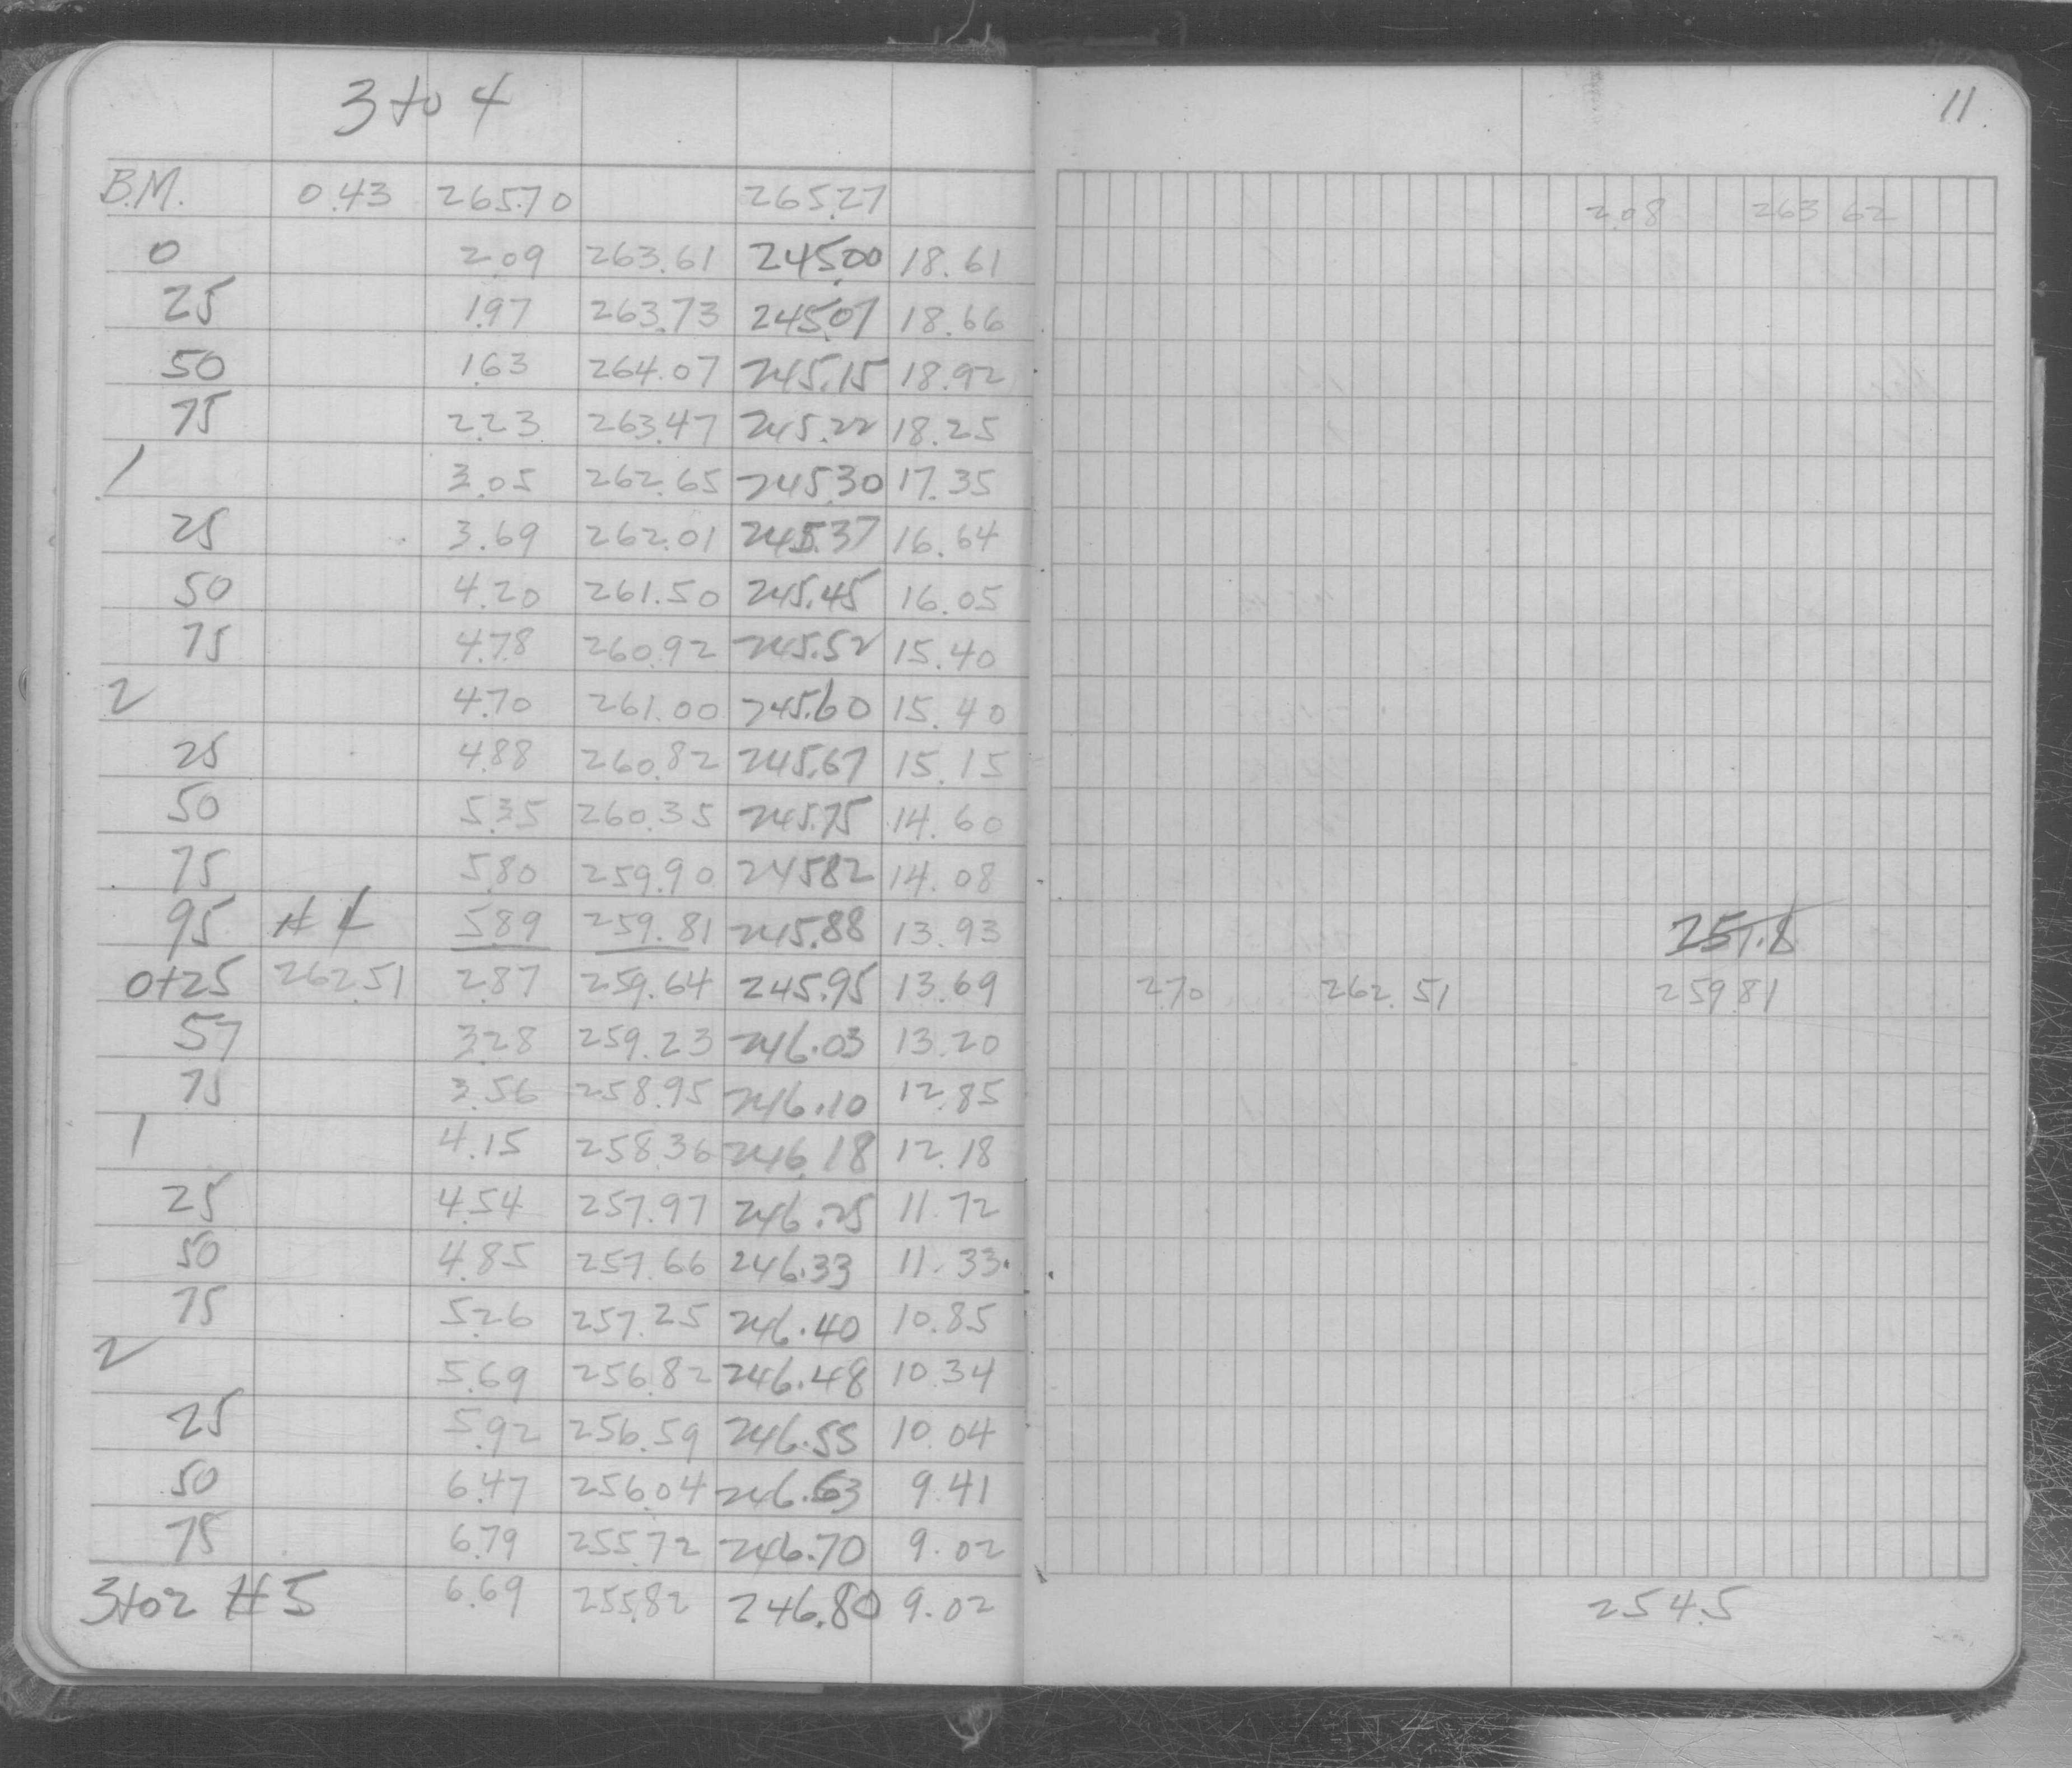 3 to 4
11
B.M. 0.43 265.70 265.27 2.08 263.62
0 2.09 263.61 245.00 18.61
25 1.97 263.73 245.07 18.66
50 1.63 264.07 245.15 18.92
75 2.23 263.47 245.22 18.25
1 3.05 262.65 245.30 17.35
25 3.69 262.01 245.37 16.64
50 4.20 261.50 245.45 16.05
75 4.78 260.92 245.52 15.40
2 4.70 261.00 245.60 15.40
25 4.88 260.82 245.67 15.15
50 5.35 260.35 245.75 14.60
75 5.80 259.90 245.82 14.08
95 #4 5.89 259.81 245.88 13.93 257.8
0+25 262.51 2.87 259.64 245.95 13.69 2.70 262.51 259.81
57 3.28 259.23 246.03 13.20
75 3.56 258.95 246.10 12.85
1 4.15 258.36 246.18 12.18
25 4.54 257.97 246.25 11.72
50 4.85 257.66 246.33 11.33
75 5.26 257.25 246.40 10.85
2 5.69 256.82 246.48 10.34
25 5.92 256.59 246.55 10.04
50 6.47 256.04 246.63 9.41
75 6.79 255.72 246.70 9.02
3+02 #5 6.69 255.82 246.80 9.02 254.5